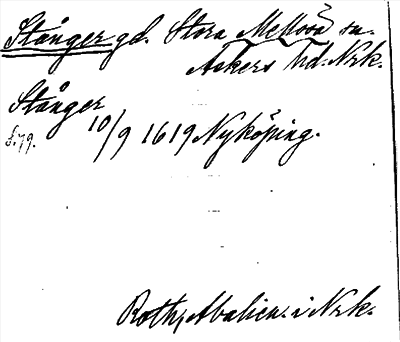 Stånger gd. Stora Mellösa sn.
Askers hd. Nrk.
Stånger
f. 79.
10/9 1619 Nyköping.
Roth, Abalien. i Nrk.